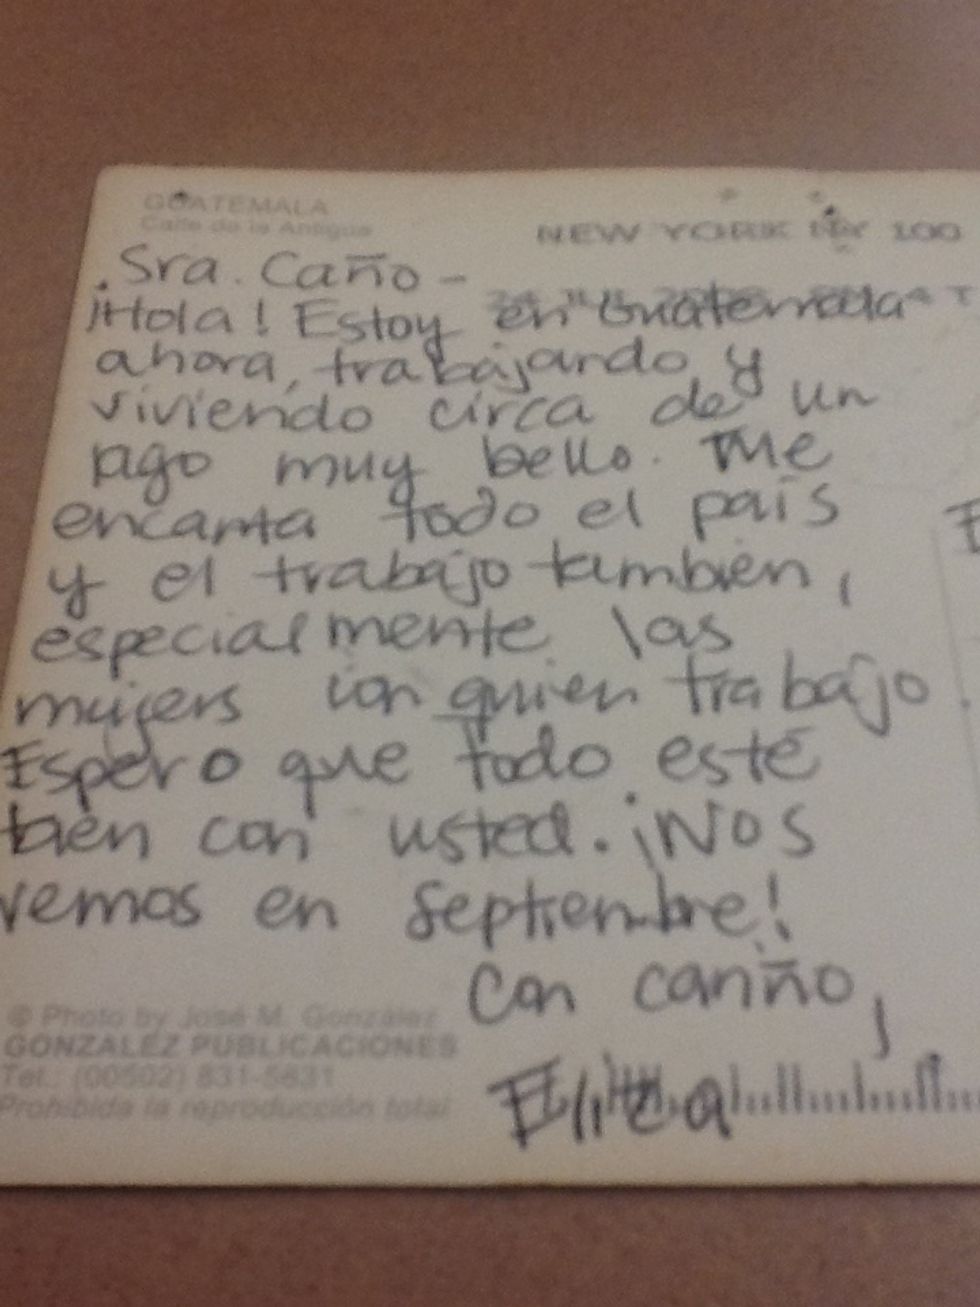 GUATEMALA
Calle de la Antigua
NEW YORK NY 100
Sra. Caño -
¡Hola! Estoy en Guatemala
ahora, trabajando y
viviendo circa de un
lago muy bello. Me
encanta todo el país
y el trabajo también,
especialmente las
mujers con quien trabajo.
Espero que todo esté
bien con usted. ¡Nos
vemos en Septiembre!
Con cariño,
Eliza
© Photo by José M. González
GONZALEZ PUBLICACIONES
Tel.: (00502) 831-5631
Prohibida la reproducción total